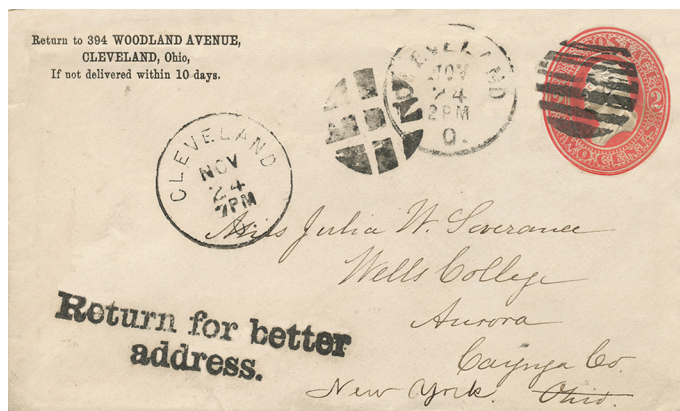 Return to 394 WOODLAND AVENUE,
CLEVELAND, Ohio,
If not delivered within 10 days.
CLEVELAND
NOV
24
2PM
O.
TWO CENTS
2
CLEVELAND
NOV
24
7PM
Miss Julia W. Severance
Wells College
Aurora
Cayuga Co.
New York. Ohio.
Return for better
address.